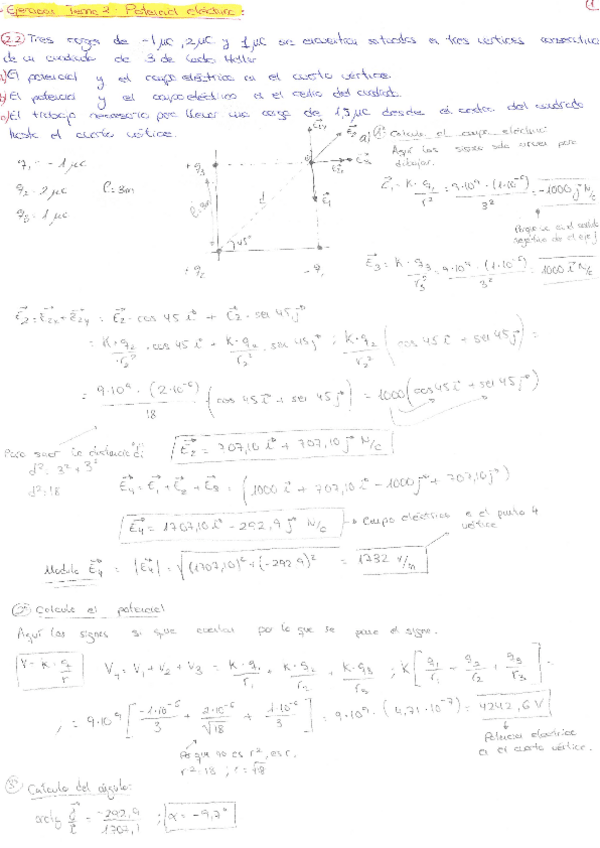 Ejercicios Tema 2: Potencial eléctrico: 1
2.2 Tres cargas de -1μC, 2μC y 1μC se encuentran situadas en tres vértices consecutivos
de un cuadrado de 3 de lado. Hallar
a) El potencial y el campo eléctrico en el cuarto vértice.
b) El potencial y el campo eléctrico en el centro del cuadrado.
c) El trabajo necesario para llevar una carga de 1,5 μC desde el centro del cuadrado
hasta el cuarto vértice.
a) 1º Calculo el campo eléctrico:
Aquí los signos solo sirven para
dibujar.
q₁ = -1 μC
q₂ = 2 μC l = 3m
q₃ = 1 μC
+ q₃
l = 3m
d
45º
+ q₂ - q₁
E₂ᵧ E₂ E₃ E₁
E₁ = K · q₁ / r² = 9·10⁹ · (1·10⁻⁶) / 3² = -1000 j N/C
Porque va en el sentido
negativo de el eje j
E₃ = K · q₃ / r₃² = 9·10⁹ · (1·10⁻⁶) / 3² = 1000 i N/C
E₂ = E₂ₓ + E₂ᵧ = E₂ · cos 45 i + E₂ · sen 45 j
= K·q₂ / r₂² · cos 45 i + K·q₂ / r₂² · sen 45 j ; K·q₂ / r₂² (cos 45 i + sen 45 j) =
= 9·10⁹ · (2·10⁻⁶) / 18 (cos 45 i + sen 45 j) = 1000 (cos 45 i + sen 45 j)
Para sacar la distancia "d"
d² = 3² + 3²
d² = 18
E₂ = 707,10 i + 707,10 j N/C
E₄ = E₁ + E₂ + E₃ = (1000 i + 707,10 i - 1000 j + 707,10 j)
E₄ = 1707,10 i - 292,9 j N/C → Campo eléctrico en el punto 4
vértice
Modulo E₄ = |E₄| = √(1707,10)² + (-292,9)² = 1732 V/m
2º Calculo el potencial
Aquí los signos si que cuentan por lo que se pone el signo.
V = K · q / r V₄ = V₁ + V₂ + V₃ = K·q₁ / r₁ + K·q₂ / r₂ + K·q₃ / r₃ ; K [q₁ / r₁ + q₂ / r₂ + q₃ / r₃] =
; = 9·10⁹ [-1·10⁻⁶ / 3 + 2·10⁻⁶ / √18 + 1·10⁻⁶ / 3] = 9·10⁹ · (4,71·10⁻⁷) = 4242,6 V
Porque no es r², es r.
r² = 18 ; r = √18
Potencial eléctrico
en el cuarto vértice.
3º Calculo del ángulo:
arctg j / i = -292,9 / 1707,1 ; α = -9,7º